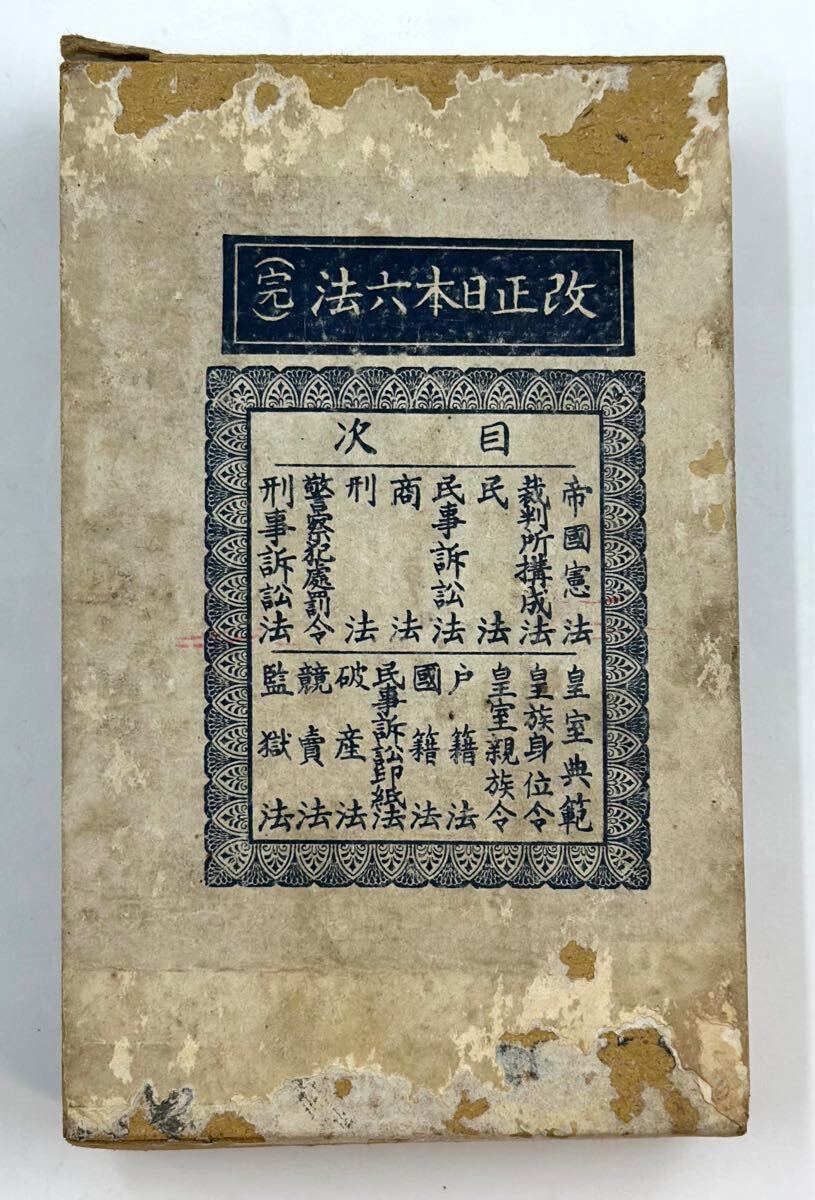 改正日本六法
(完)
目次
帝國憲法
裁判所搆成法
民法
民事訴訟法
商法
刑法
警察犯處罰令
刑事訴訟法
皇室典範
皇族身位令
皇室親族令
戸籍法
國籍法
民事訴訟印紙法
破産法
競賣法
監獄法